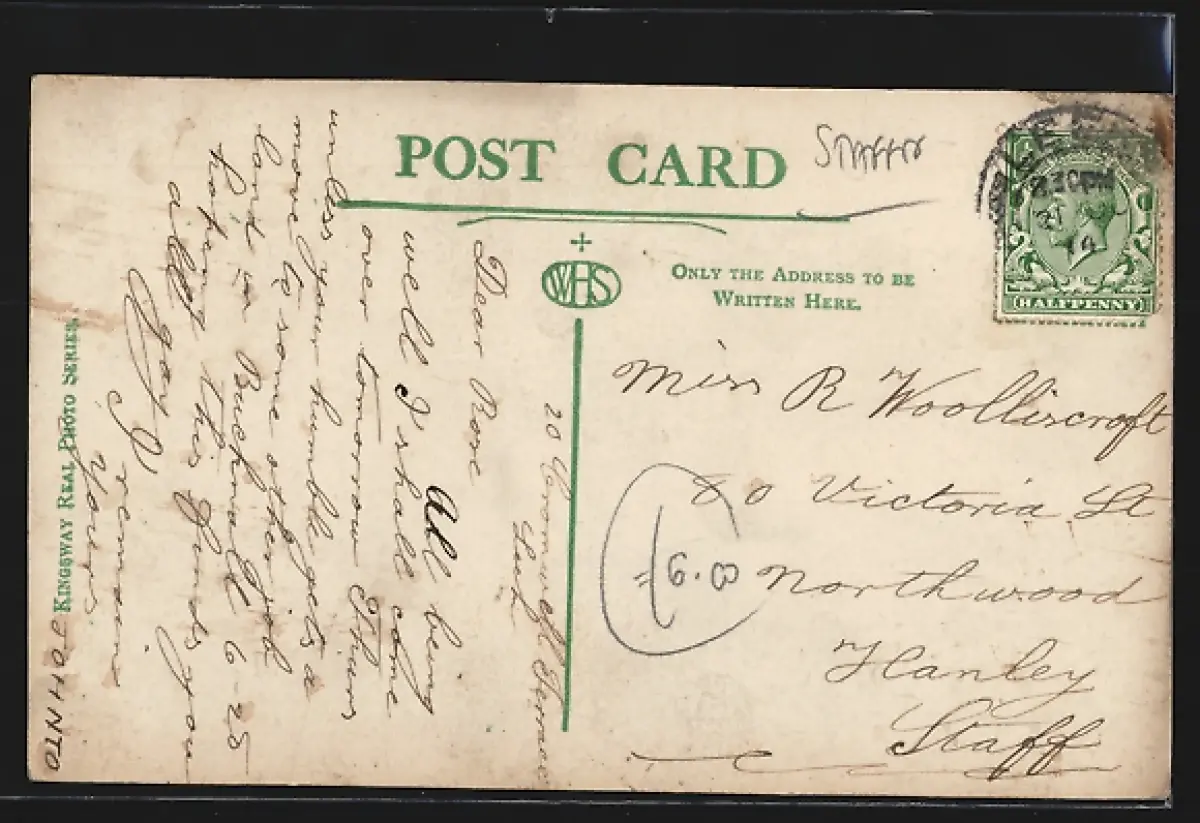 POST CARD
WHS
ONLY THE ADDRESS TO BE
WRITTEN HERE.
HALFPENNY
KINGSWAY REAL PHOTO SERIES.
20 Terrace
Leek
Dear Rose
All being
well I shall come
over tomorrow Thurs
unless your humble gets a
move to some other job
land in Bucknall 6-25
hoping this finds you
all
remains
Yours
Miss R Woolliscroft
80 Victoria St
Northwood
Hanley
Staff